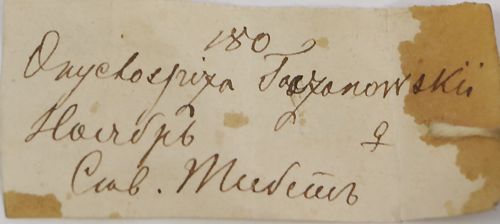 180
Onychospiza Taczanowskii
Ноябрь ♀
Сѣв. Тибетъ